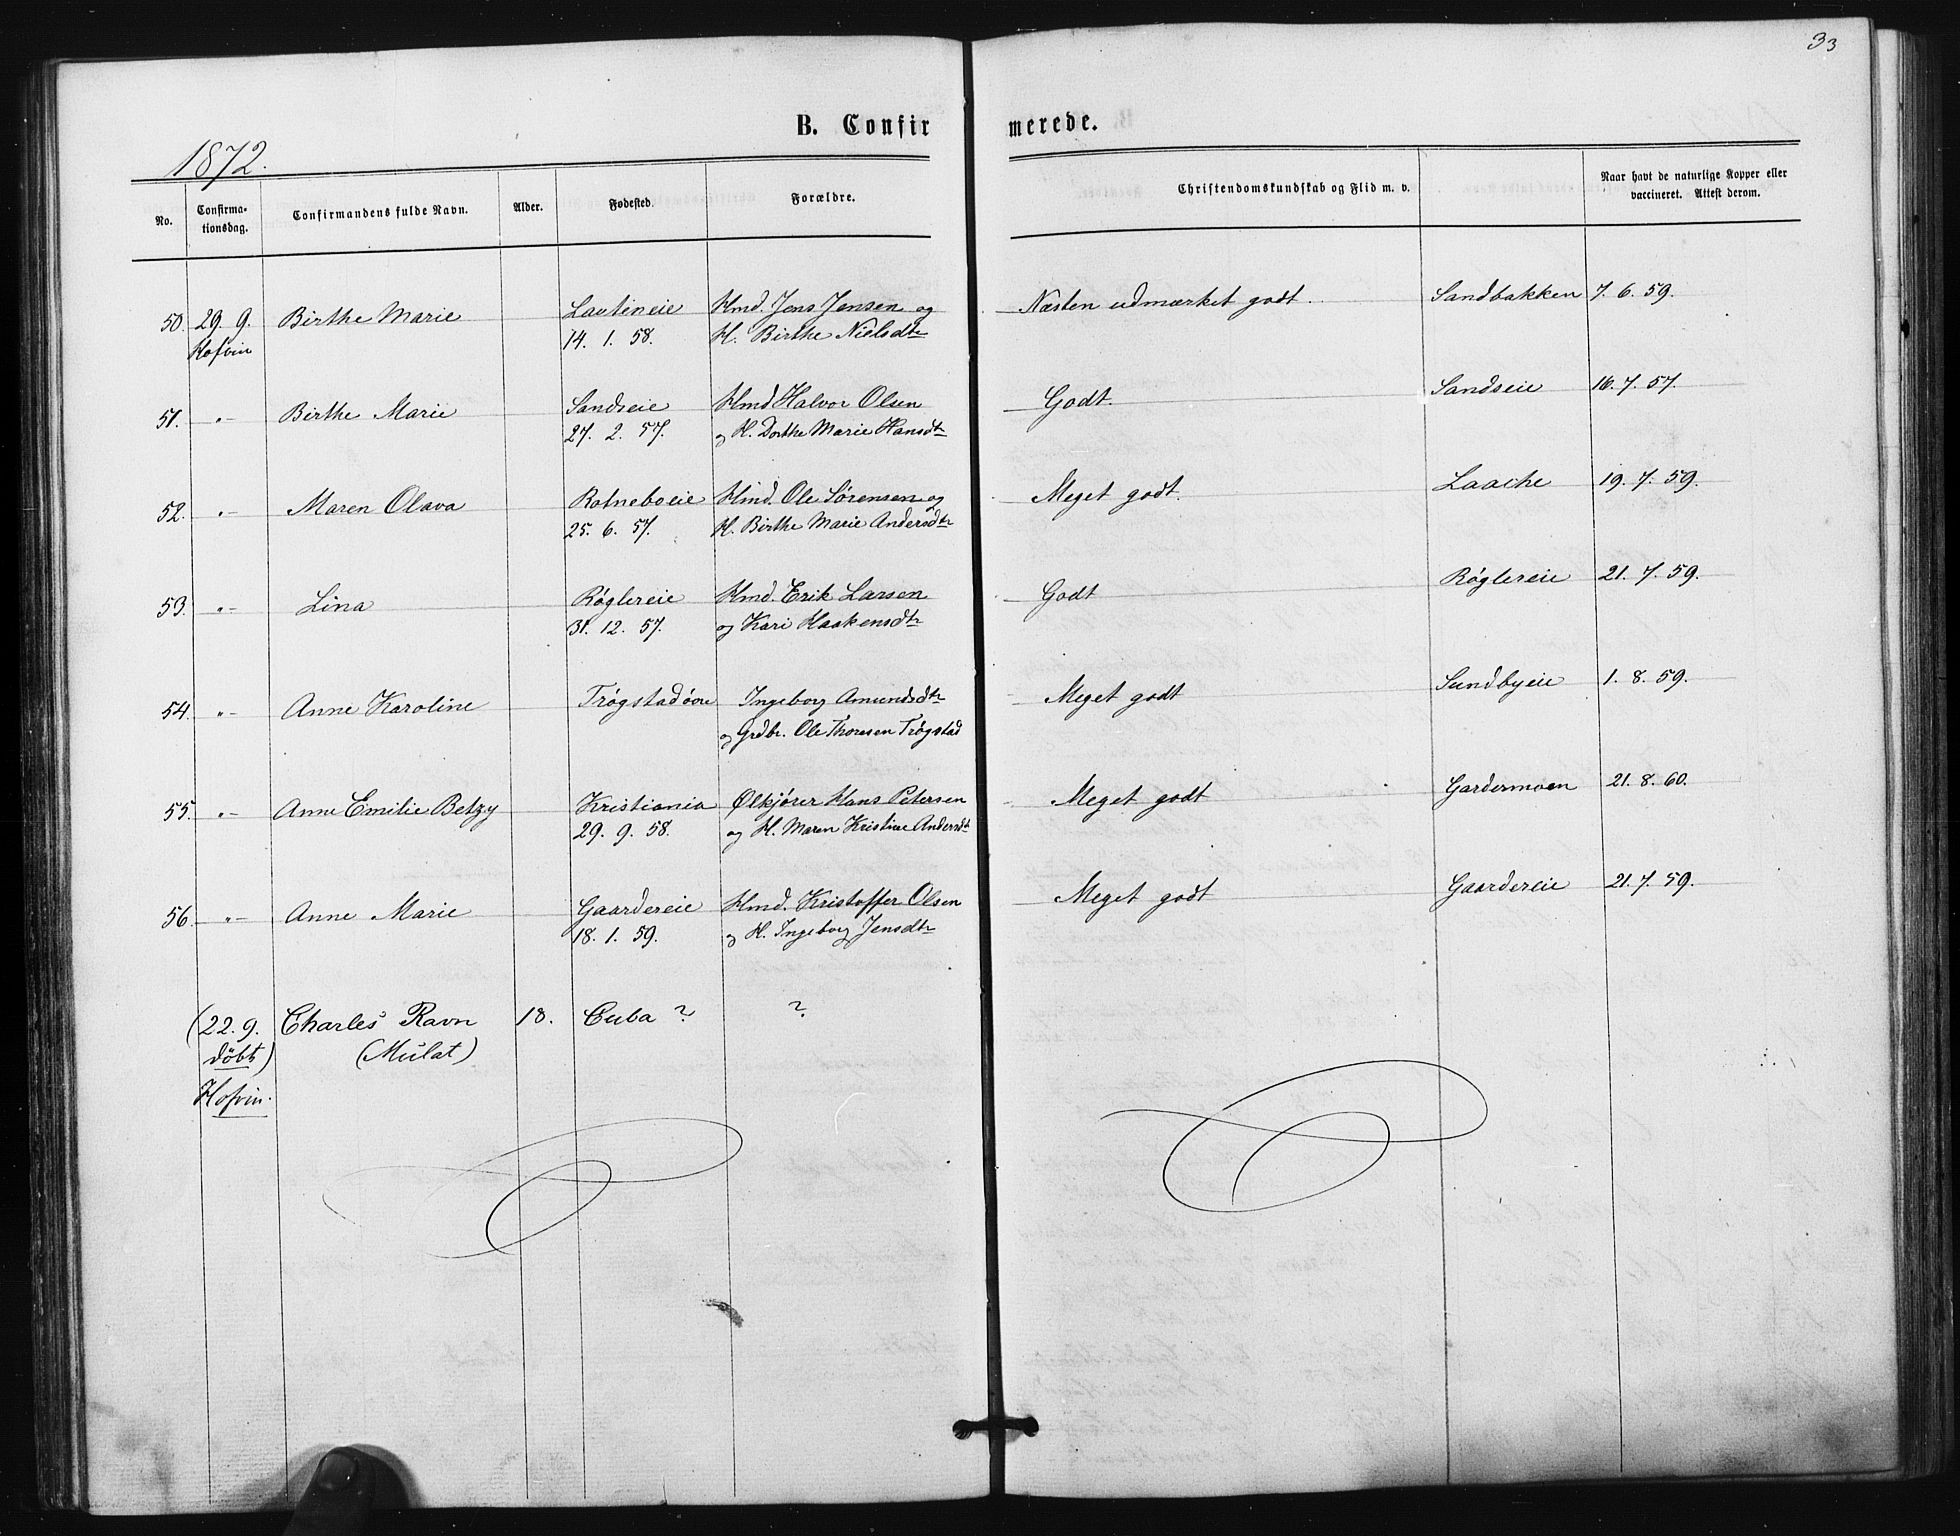 33
B. Confirmerede.
1872.
No. Confirmationsdag. Confirmandens fulde Navn. Alder. Fødested. Forældre. Christendomskundskab og Flid m. v. Naar havt de naturlige Kopper eller vaccineret. Attest derom.
50. 29. 9. Birthe Marie Lautineie Hmd. Jens Jensen og Næsten udmærket godt. Sandbakken 7. 6. 59.
Hofvin 14. 1. 58. H. Birthe Nielsdtr
51. "- Birthe Marie Sandseie Hmd Halvor Olsen Godt. Sandseie 16. 7. 57.
27. 2. 57. og H. Dorthe Marie Hansdtr
52. "- Maren Olava Rotneboeie Hmd. Ole Sørensen og Meget godt. Laache 19. 7. 59.
25. 6. 57. H. Birthe Marie Andersdtr
53. "- Lina Røglereie Hmd. Erik Larsen Godt Røglereie 21. 7. 59.
31. 12. 57. og Kari Haakensdtr
54. "- Anne Karoline Trøgstadøvre Ingeborg Amundsdtr Meget godt Sundbyeie 1. 8. 59.
og Grdbr. Ole Thoresen Trøgstad
55. "- Anne Emilie Betzy Kristiania Ølkjører Hans Petersen Meget godt Gardermoen 21. 8. 60.
29. 9. 58. og H. Maren Kristine Andersdt
56. "- Anne Marie Gaardereie Hmd. Kristoffer Olsen Meget godt Gaardereie 21. 7. 59.
18. 1. 59. og H. Ingeborg Jensdtr
(22. 9. Charles Ravn 18. Cuba ? ?
döbt) (Mulat)
Hofvin.